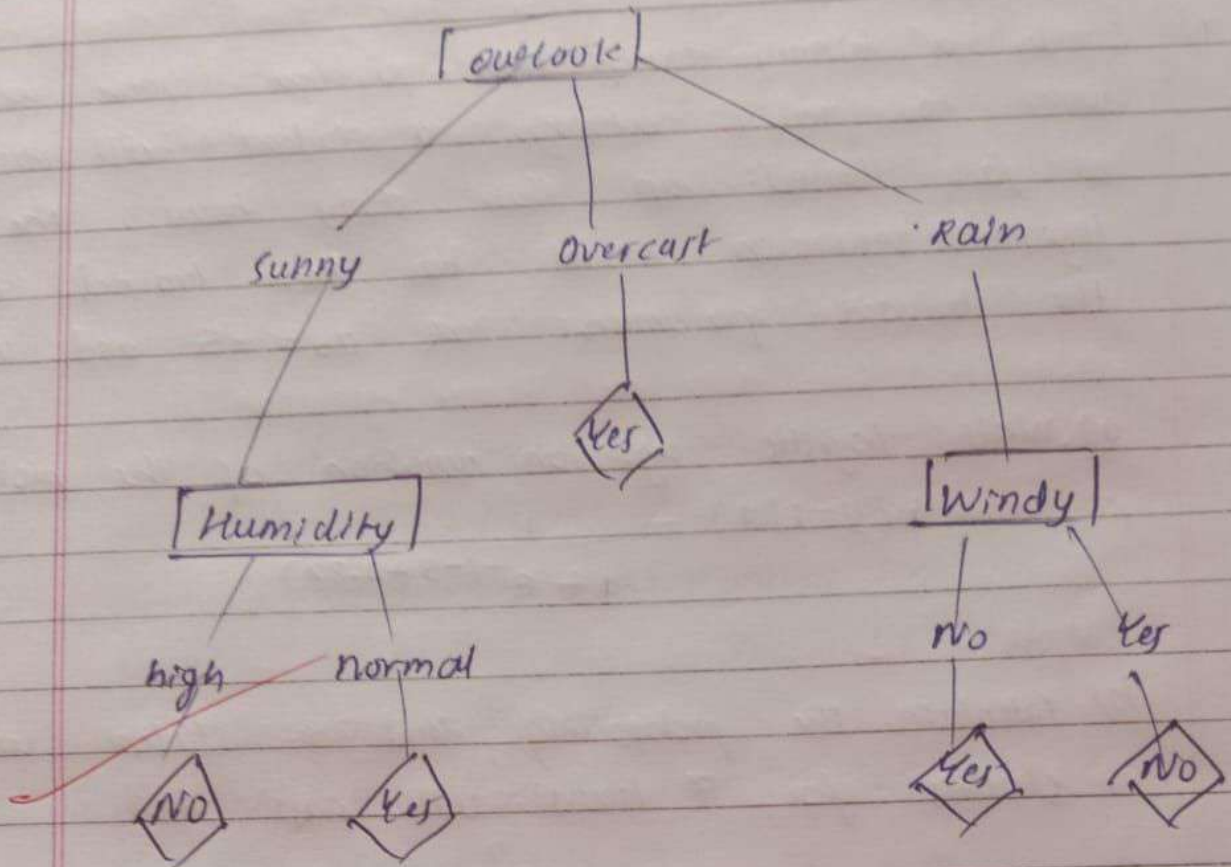 Outlook
Sunny Overcast Rain
Yes
Humidity Windy
high normal No Yes
No Yes Yes No